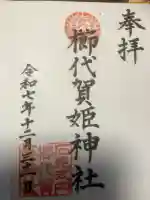 奉拝
櫛代賀姫神社
令和七年十二月三十一日